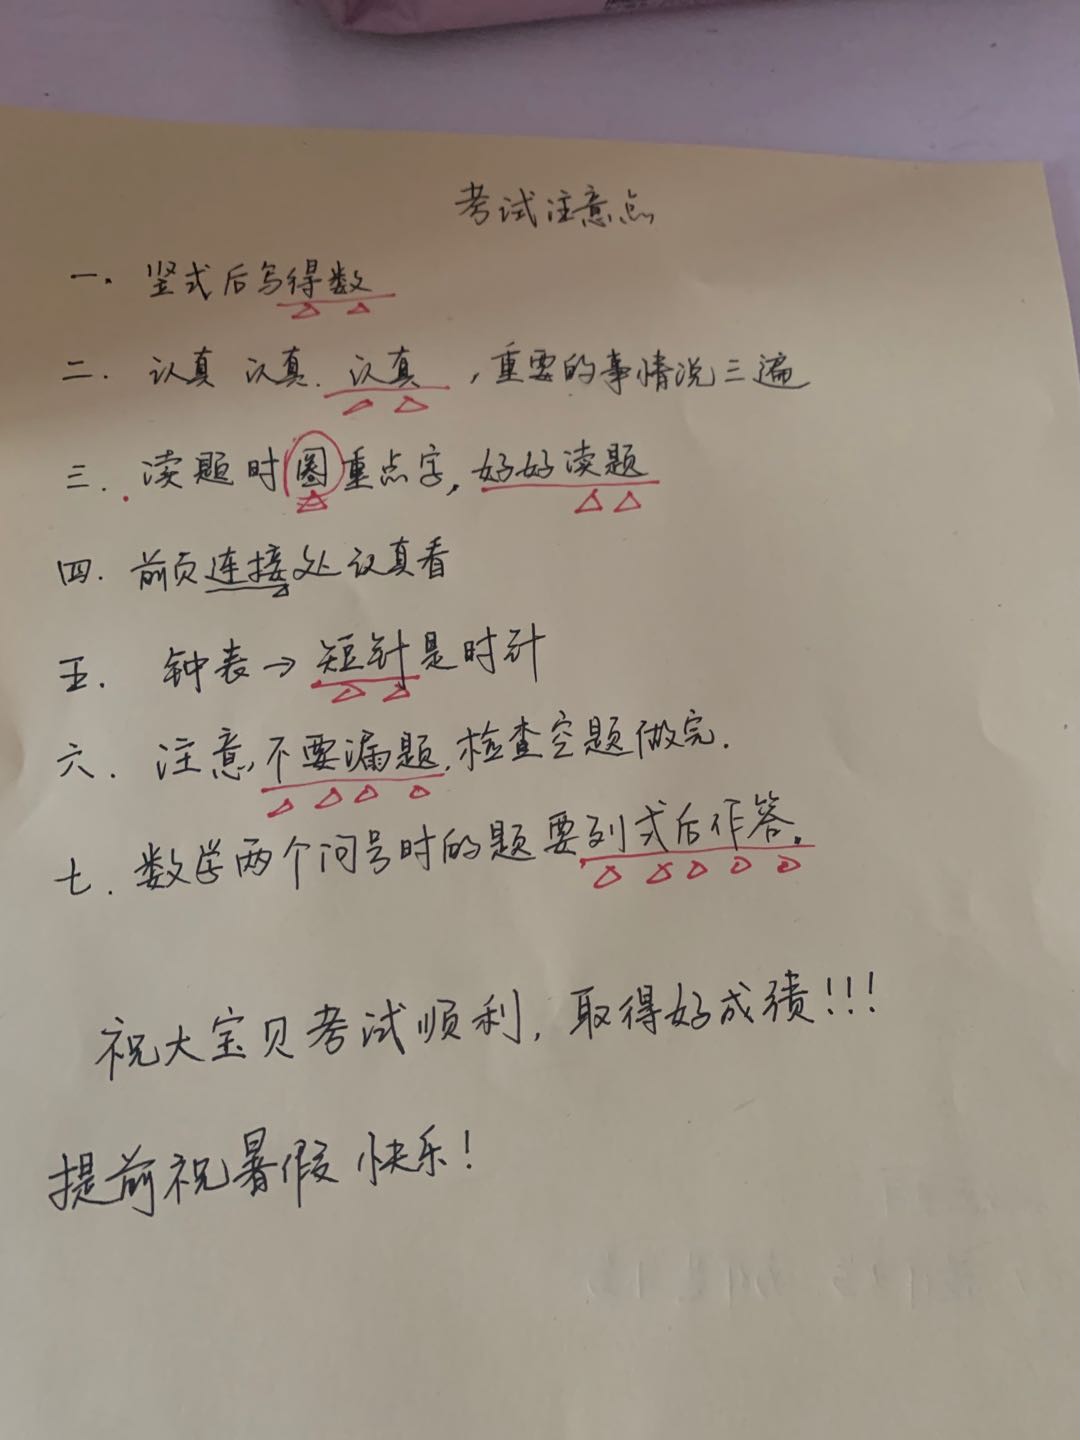 考试注意点
一. 竖式后写得数
二. 认真 认真. 认真，重要的事情说三遍
三. 读题时圈重点字, 好好读题
四. 前页连接处认真看
五. 钟表→短针是时针
六. 注意,不要漏题.检查空题做完.
七. 数学两个问号时的题要列式后作答.
祝大宝贝考试顺利, 取得好成绩!!!
提前祝暑假快乐!